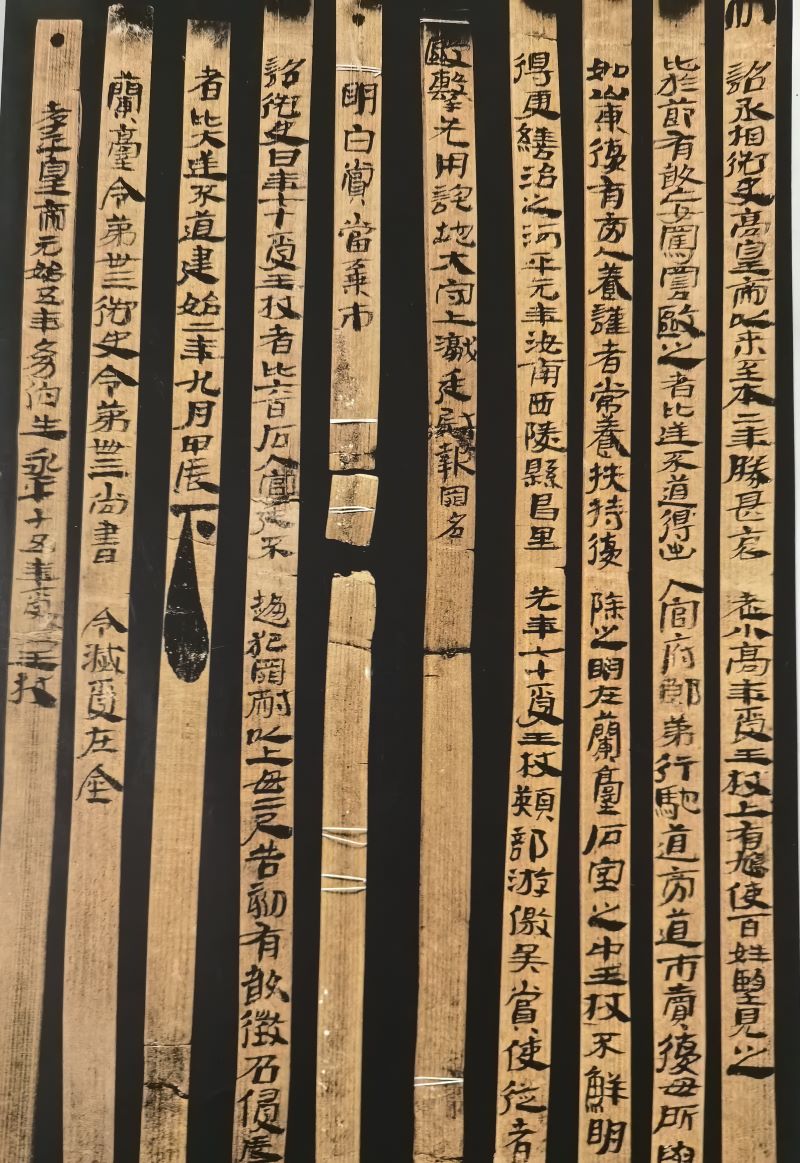 詔丞相御史高皇帝以來至本二年勝甚哀老小高年受王杖上有鳩使百姓望見之
比於節有敢妄罵詈毆之者比逆不道得出入官府郎第行馳道旁道市賣復毋所與
如山東復有旁人養謹者常養扶持復除之明在蘭臺石室之中王杖不鮮明
得更繕治之河平元年汝南西陵縣昌里先年七十受王杖䫋部游徼吳賞使從者
毆擊先用詫地大守上讞廷尉報罪名
明白賞當棄市
詔御史曰年七十受王杖者比六百石入官廷不趨犯罪耐以上毋二尺告劾有敢徵召侵辱
者比大逆不道建始二年九月甲辰下
蘭臺令第卅三御史令第卌三尚書令滅受在金
孝平皇帝元始五年幼伯生永平十五年受王杖